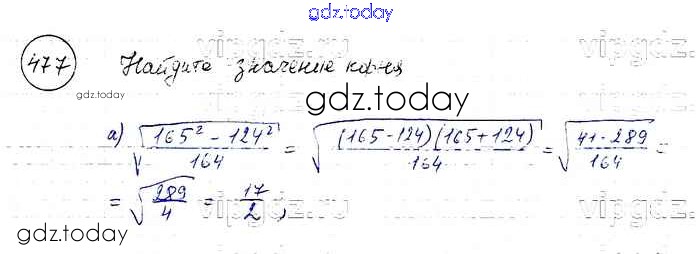 gdz.today
477 Найдите значение корня
vipgdz.ru
gdz.today
gdz.today
а) √((165² - 124²)/164) = √(((165-124)(165+124))/164) = √((41·289)/164) =
= √(289/4) = 17/2 ;
gdz.today
vipgdz.ru